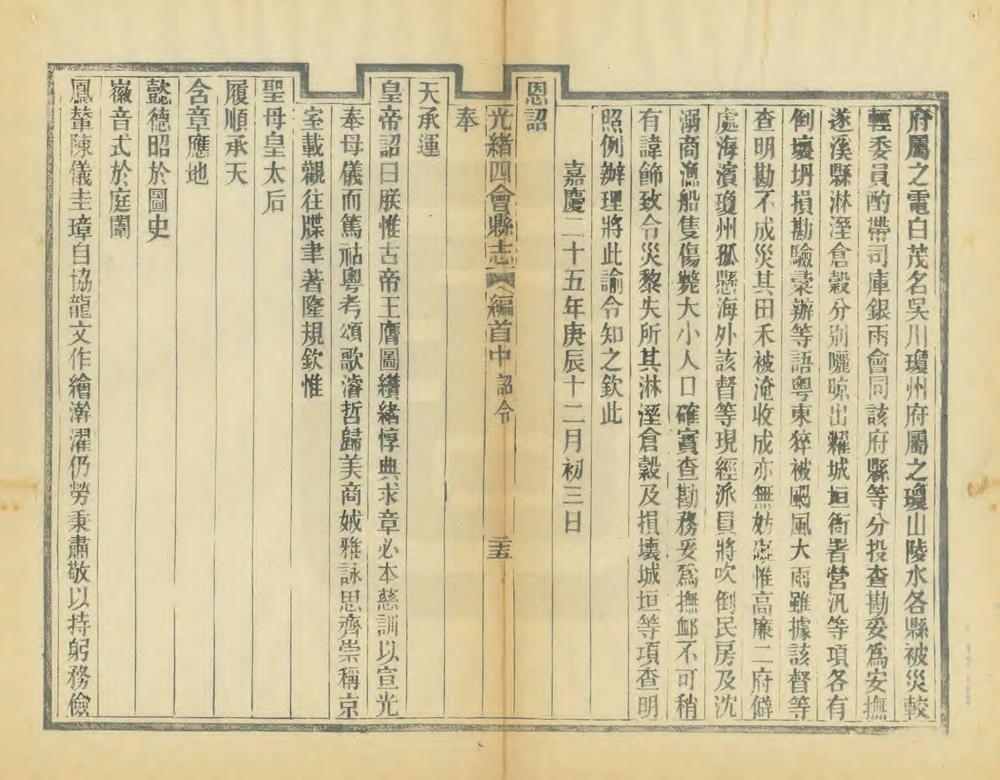 府屬之電白茂名吳川瓊州府屬之瓊山陵水各縣被災較
輕委員酌帶司庫銀兩會同該府縣等分投查勘妥為安撫
遂溪縣淋溼倉穀分別曬晾出糶城垣衙署營汛等項各有
倒壞坍損勘驗彙辦等語粵東猝被颶風大雨雖據該督等
查明勘不成災其田禾被淹收成亦無妨礙惟高廉二府僻
處海濱瓊州孤懸海外該督等現經派員將吹倒民房及沈
溺商漁船隻傷斃大小人口確實查勘務妥為撫衈不可稍
有諱飾致令災黎失所其淋溼倉穀及損壞城垣等項查明
照例辦理將此諭令知之欽此
嘉慶二十五年庚辰十二月初三日
恩詔
光緒四會縣志 編首中 詔令 二十五
奉
天承運
皇帝詔曰朕惟古帝王膺圖纘緒惇典求章必本慈訓以宣光
奉母儀而篤祜粵考頌歌濬哲歸美商娀雅詠思齊崇稱京
室載觀往牒聿著隆規欽惟
聖母皇太后
履順承天
含章應地
懿德昭於圖史
徽音式於庭闈
鳳輦陳儀圭璋自協龍文作繪澣濯仍勞秉肅敬以持躬務儉